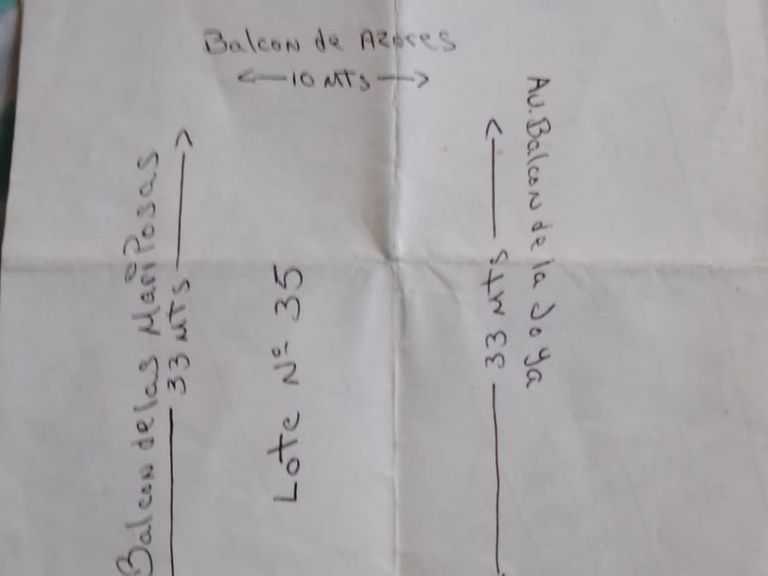 Balcon de Azores
10 MTS
Av. Balcon de la Joya
33 MTS
Balcon de las MariPosas
33 MTS
Lote Nº 35